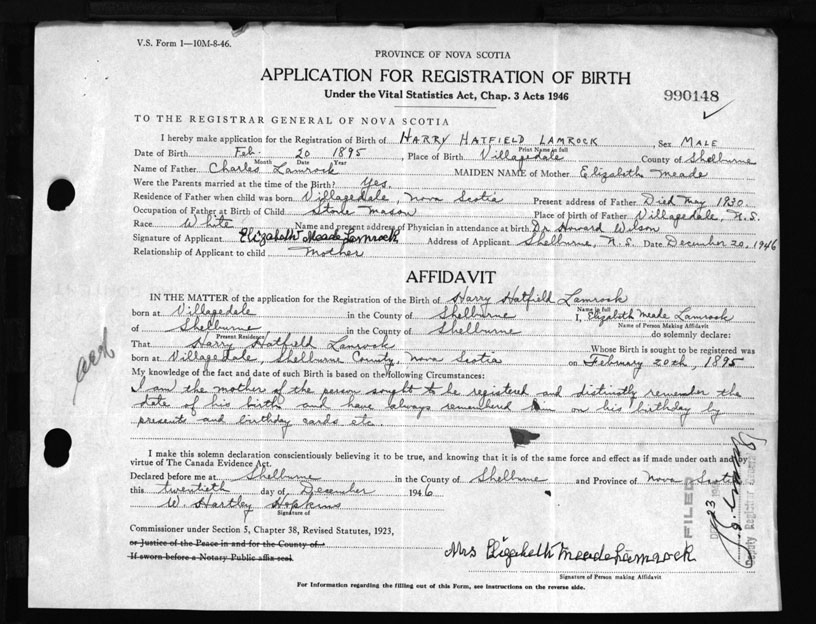 V.S. Form 1—10M-8-46.
PROVINCE OF NOVA SCOTIA
APPLICATION FOR REGISTRATION OF BIRTH
Under the Vital Statistics Act, Chap. 3 Acts 1946
990148
TO THE REGISTRAR GENERAL OF NOVA SCOTIA
I hereby make application for the Registration of Birth of HARRY HATFIELD LAMROCK, Sex MALE
Print Name in full
Date of Birth Feb. 20 1895, Place of Birth Villagedale County of Shelburne
Month Date Year
Name of Father Charles Lamrock MAIDEN NAME of Mother Elizabeth Meade
Were the Parents married at the time of the Birth? Yes.
Residence of Father when child was born Villagedale, Nova Scotia Present address of Father Died May 1930.
Occupation of Father at Birth of Child Stone Mason Place of birth of Father Villagedale, N.S.
Race White Name and present address of Physician in attendance at birth Dr Howard Wilson
Signature of Applicant Elizabeth Meade Lamrock Address of Applicant Shelburne, N.S. Date December 20, 1946
Relationship of Applicant to child Mother
AFFIDAVIT
IN THE MATTER of the application for the Registration of the Birth of Harry Hatfield Lamrock
Name in full
born at Villagedale in the County of Shelburne I, Elizabeth Meade Lamrock
Name of Person Making Affidavit
of Shelburne in the County of Shelburne do solemnly declare:
Present Residence
That Harry Hatfield Lamrock Whose Birth is sought to be registered was
born at Villagedale, Shelburne County, Nova Scotia on February 20th, 1895
My knowledge of the fact and date of such Birth is based on the following Circumstances:
I am the mother of the person sought to be registered and distinctly remember the
date of his birth and have always remembered him on his birthday by
presents and birthday cards etc.
I make this solemn declaration conscientiously believing it to be true, and knowing that it is of the same force and effect as if made under oath and by
virtue of The Canada Evidence Act.
Declared before me at Shelburne in the County of Shelburne and Province of Nova Scotia
this twentieth day of December 1946
W Hartley Hopkins
Signature of
Commissioner under Section 5, Chapter 38, Revised Statutes, 1923,
or Justice of the Peace in and for the County of
If sworn before a Notary Public affix seal.
Mrs Elizabeth Meade Lamrock
Signature of Person making Affidavit
For Information regarding the filling out of this Form, see instructions on the reverse side.
FILED
23
Deputy Registrar General